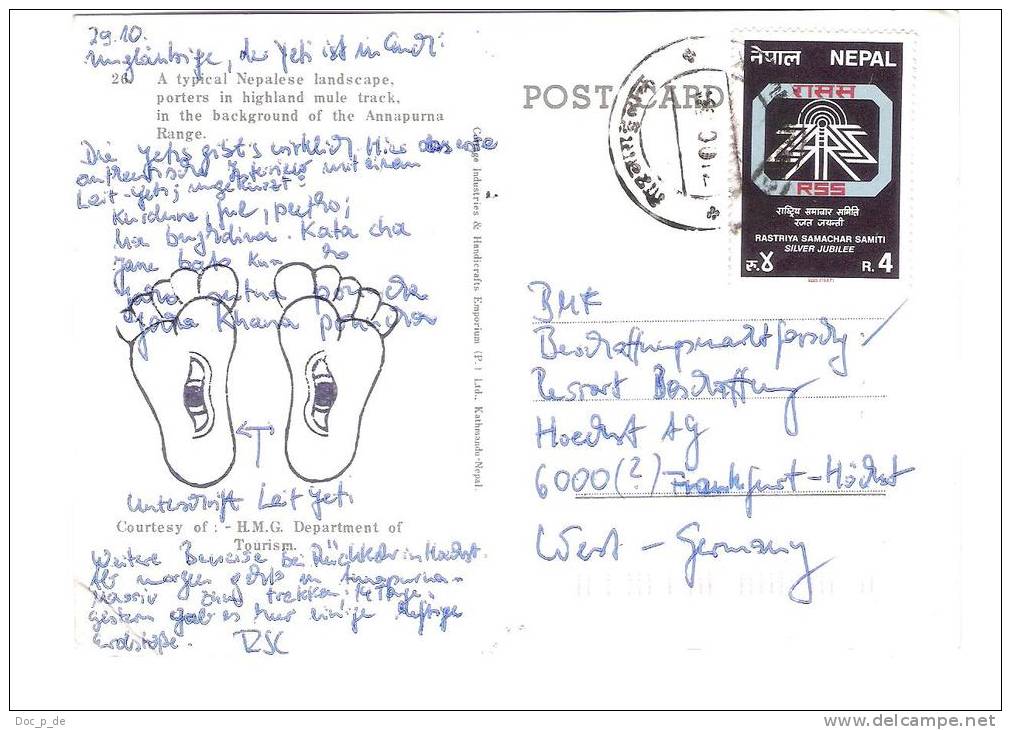 29.10.
Ungläubige, der Yeti ist in
26. A typical Nepalese landscape,
porters in highland mule track,
in the background of the Annapurna
Range.
Die Yetis gibt's wirklich! Hier das erste
authentische Interview mit einem
Leit-Yeti; ungekürzt!
Kata cha
Khana
Unterschrift Leit Yeti
Courtesy of : - H.M.G. Department of
Tourism.
Weitere Beweise bei Rückkehr in Hoechst.
Ab morgen geht's in Annapurna-
Massiv
gestern gab es nur einige heftige
Erdstöße. RSC
Cottage Industries & Handicrafts Emporium (P.) Ltd., Kathmandu-Nepal.
POST CARD
नेपाल NEPAL
रासस
RSS
राष्ट्रिय समाचार समिति
रजत जयन्ती
RASTRIYA SAMACHAR SAMITI
SILVER JUBILEE
रु.४ R. 4
BMF
Beschaffungsmarktforschg.
Ressort Beschaffung
Hoechst AG
6000(?) Frankfurt-Höchst
West-Germany
Doc_p_de
delcampe.net